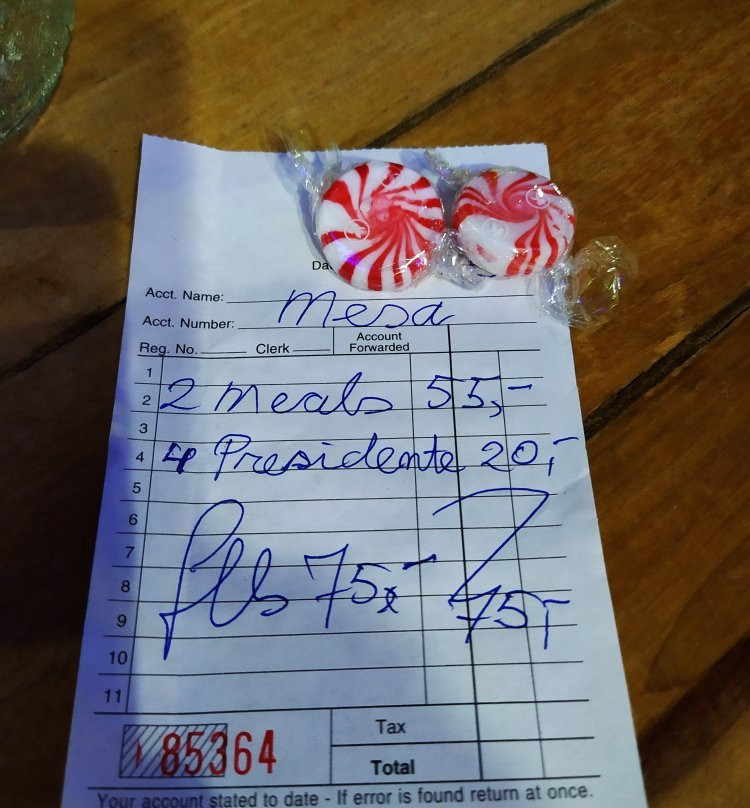 Da
Acct. Name:
Acct. Number:
Mesa
Reg. No. Clerk Account Forwarded
1
2 2 Meals 55,-
3
4 4 Presidente 20,-
5
6
7
8 fls 75,-
9 75,-
10
11
85364
Tax
Total
Your account stated to date - If error is found return at once.